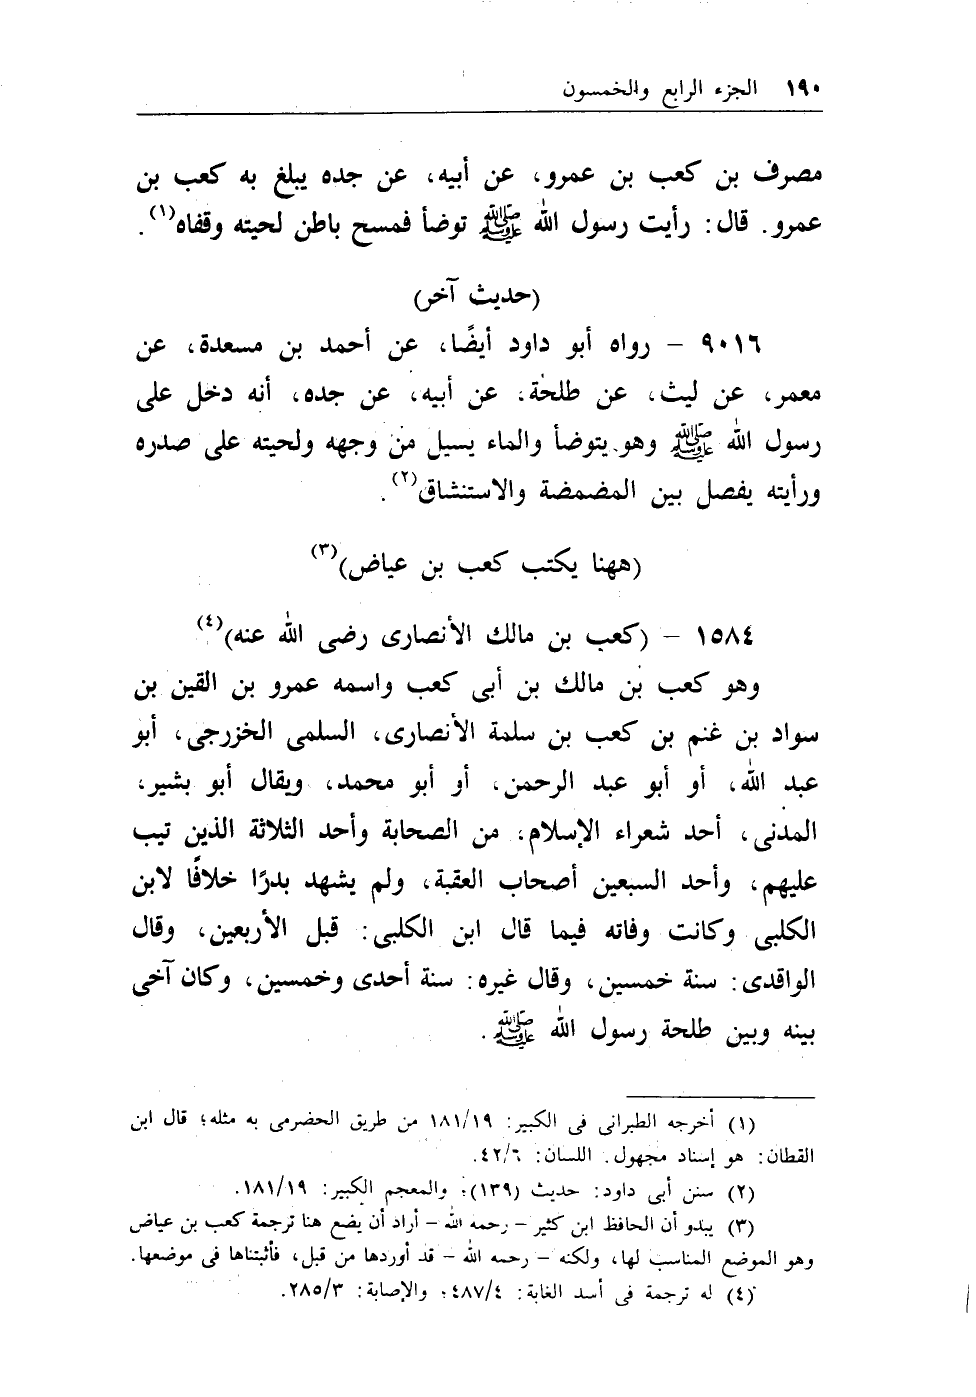 ١٩٠ الجزء الرابع والخمسون
مصرف بن كعب بن عمرو، عن أبيه، عن جده يبلغ به كعب بن
عمرو. قال: رأيت رسول الله ﷺ توضأ فمسح باطن لحيته وقفاه(١).
(حديث آخر)
٩٠١٦ – رواه أبو داود أيضًا، عن أحمد بن مسعدة، عن
معمر، عن ليث، عن طلحة، عن أبيه، عن جده، أنه دخل على
رسول الله ﷺ وهو يتوضأ والماء يسيل من وجهه ولحيته على صدره
ورأيته يفصل بين المضمضة والاستنشاق(٢).
(ههنا يكتب كعب بن عياض)(٣)
١٥٨٤ – (كعب بن مالك الأنصارى رضى الله عنه)(٤)
وهو كعب بن مالك بن أبى كعب واسمه عمرو بن القين بن
سواد بن غنم بن كعب بن سلمة الأنصارى، السلمى الخزرجى، أبو
عبد الله، أو أبو عبد الرحمن، أو أبو محمد، ويقال أبو بشير،
المدنى، أحد شعراء الإسلام، من الصحابة وأحد الثلاثة الذين تيب
عليهم، وأحد السبعين أصحاب العقبة، ولم يشهد بدرًا خلافًا لابن
الكلبى وكانت وفاته فيما قال ابن الكلبى: قبل الأربعين، وقال
الواقدى: سنة خمسين، وقال غيره: سنة أحدى وخمسين، وكان آخى
بينه وبين طلحة رسول الله ﷺ.
(١) أخرجه الطبرانى فى الكبير: ١٨١/١٩ من طريق الحضرمى به مثله؛ قال ابن
القطان: هو إسناد مجهول. اللسان: ٤٢/٦.
(٢) سنن أبى داود: حديث (١٣٩)؛ والمعجم الكبير: ١٨١/١٩.
(٣) يبدو أن الحافظ ابن كثير – رحمه الله – أراد أن يضع هنا ترجمة كعب بن عياض
وهو الموضع المناسب لها، ولكنه – رحمه الله – قد أوردها من قبل، فأثبتناها فى موضعها.
(٤) له ترجمة فى أسد الغابة: ٤٨٧/٤؛ والإصابة: ٢٨٥/٣.